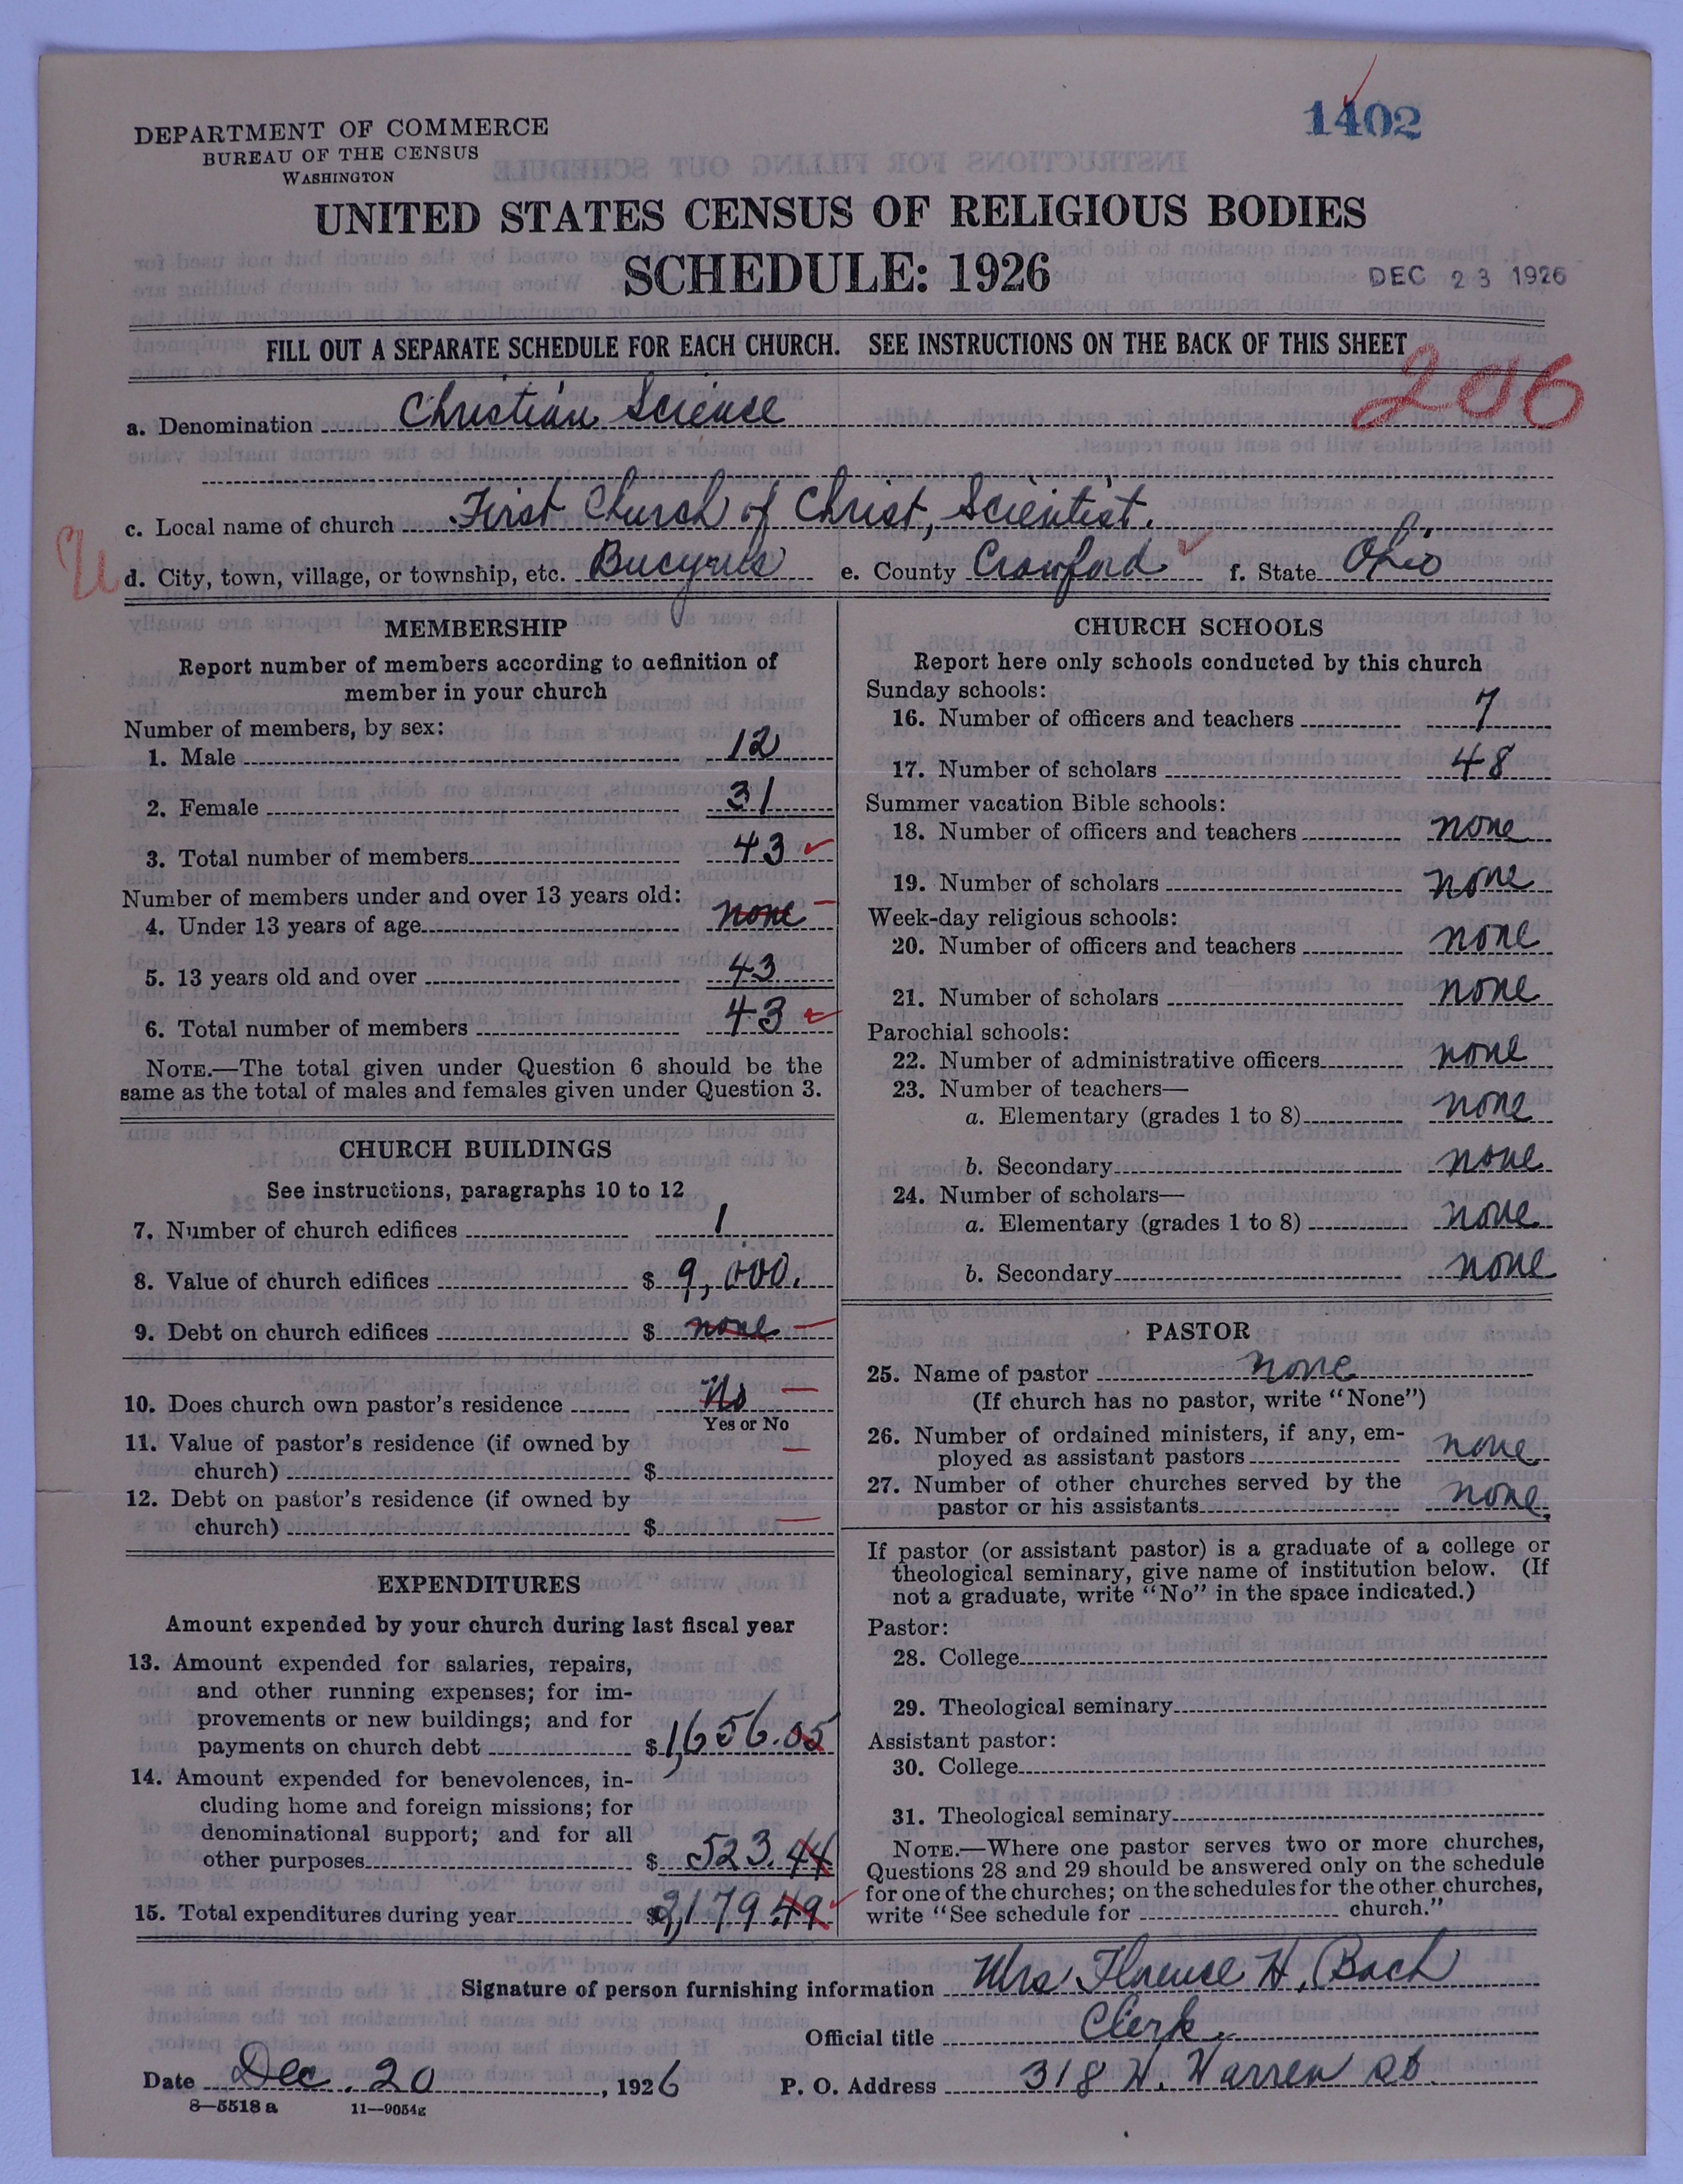 1402
DEPARTMENT OF COMMERCE
BUREAU OF THE CENSUS
WASHINGTON
UNITED STATES CENSUS OF RELIGIOUS BODIES
SCHEDULE: 1926
DEC 23 1926
FILL OUT A SEPARATE SCHEDULE FOR EACH CHURCH. SEE INSTRUCTIONS ON THE BACK OF THIS SHEET
206
a. Denomination Christian Science
c. Local name of church First Church of Christ, Scientist.
U d. City, town, village, or township, etc. Bucyrus e. County Crawford f. State Ohio
MEMBERSHIP
Report number of members according to definition of
member in your church
Number of members, by sex:
1. Male 12
2. Female 31
3. Total number of members 43
Number of members under and over 13 years old:
4. Under 13 years of age none
5. 13 years old and over 43
6. Total number of members 43
NOTE.—The total given under Question 6 should be the
same as the total of males and females given under Question 3.
CHURCH BUILDINGS
See instructions, paragraphs 10 to 12
7. Number of church edifices 1
8. Value of church edifices $ 9,000.
9. Debt on church edifices $ none
10. Does church own pastor's residence No
Yes or No
11. Value of pastor's residence (if owned by
church) $
12. Debt on pastor's residence (if owned by
church) $
EXPENDITURES
Amount expended by your church during last fiscal year
13. Amount expended for salaries, repairs,
and other running expenses; for im-
provements or new buildings; and for
payments on church debt $ 1,656.05
14. Amount expended for benevolences, in-
cluding home and foreign missions; for
denominational support; and for all
other purposes $ 523.44
15. Total expenditures during year $ 2,179.49
CHURCH SCHOOLS
Report here only schools conducted by this church
Sunday schools:
16. Number of officers and teachers 7
17. Number of scholars 48
Summer vacation Bible schools:
18. Number of officers and teachers none
19. Number of scholars none
Week-day religious schools:
20. Number of officers and teachers none
21. Number of scholars none
Parochial schools:
22. Number of administrative officers none
23. Number of teachers—
a. Elementary (grades 1 to 8) none
b. Secondary none
24. Number of scholars—
a. Elementary (grades 1 to 8) none
b. Secondary none
PASTOR
25. Name of pastor none
(If church has no pastor, write "None")
26. Number of ordained ministers, if any, em-
ployed as assistant pastors none
27. Number of other churches served by the
pastor or his assistants none
If pastor (or assistant pastor) is a graduate of a college or
theological seminary, give name of institution below. (If
not a graduate, write "No" in the space indicated.)
Pastor:
28. College
29. Theological seminary
Assistant pastor:
30. College
31. Theological seminary
NOTE.—Where one pastor serves two or more churches,
Questions 28 and 29 should be answered only on the schedule
for one of the churches; on the schedules for the other churches,
write "See schedule for church."
Signature of person furnishing information Mrs Florence H. Bach
Official title Clerk
Date Dec. 20, 1926 P. O. Address 318 W. Warren St.
8—5518 a 11—9054g